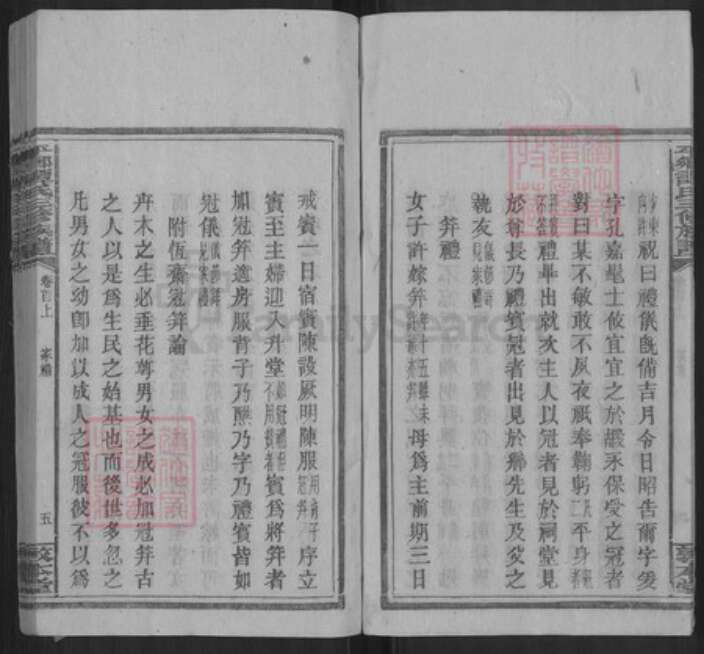 祝曰禮儀旣備吉月令日昭告爾字爰
字孔嘉髦士攸宜宜之於嘏永保受之冠者
對曰某不敏敢不夙夜祇奉鞠躬平身
禮畢出就次主人以冠者見於祠堂見
於尊長乃禮賓冠者出見於鄉先生及父之
執友
笄禮
女子許嫁笄年十五雖未許嫁亦笄母爲主前期三日
戒賓一日宿賓陳設厥明陳服序立
賓至主婦迎入升堂賓爲將笄者
加冠笄適房服背子乃醮乃字乃禮賓皆如
冠儀
附恆齋冠笄論
卉木之生必垂花萼男女之成必加冠笄古
之人以是爲生民之始基也而後世多忽之
凡男女之幼卽加以成人之冠服彼不以爲
卷首上 家禮 五
敦本堂
FamilySearch